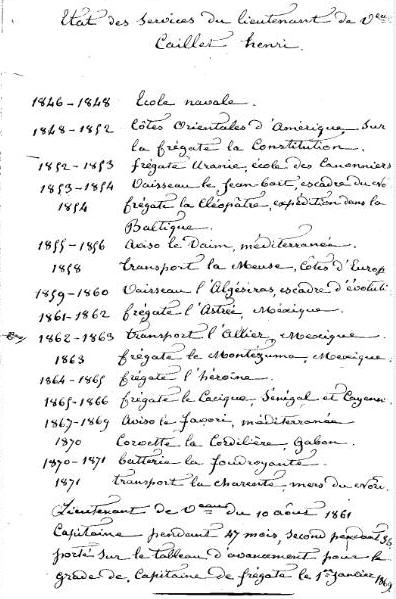 Etat des services du lieutenant de Veau
Caillet henri.
1846-1848 Ecole navale.
1848-1852 Côtes Orientales d'Amérique, sur
la frégate la Constitution.
1852-1853 frégate Uranie, école des Canonniers
1853-1854 Vaisseau le Jean bart, escadre du
1854 frégate la Cléopâtre, expédition dans la
Baltique.
1855-1856 Aviso le Daim, méditerranée.
1858 transport la Meuse, Côtes d'Europ
1859-1860 Vaisseau l'Algésiras, escadre d'évoluti
1861-1862 frégate l'Astrée, Mexique.
1862-1863 transport l'Allier, Mexique.
1863 frégate le Montézuma, Mexique.
1864-1865 frégate l'héroïne.
1865-1866 frégate le Cacique, Sénégal et Cayenne
1867-1869 Aviso le favori, méditerranée
1870 Corvette la Cordilière, Gabon.
1870-1871 batterie la foudroyante.
1871 transport la charente, mers du Nord.
Lieutenant de Veau du 10 août 1861
Capitaine pendant 47 mois, second pendant 36
porté sur le tableau d'avancement pour le
grade de Capitaine de frégate le 1er janvier 1869